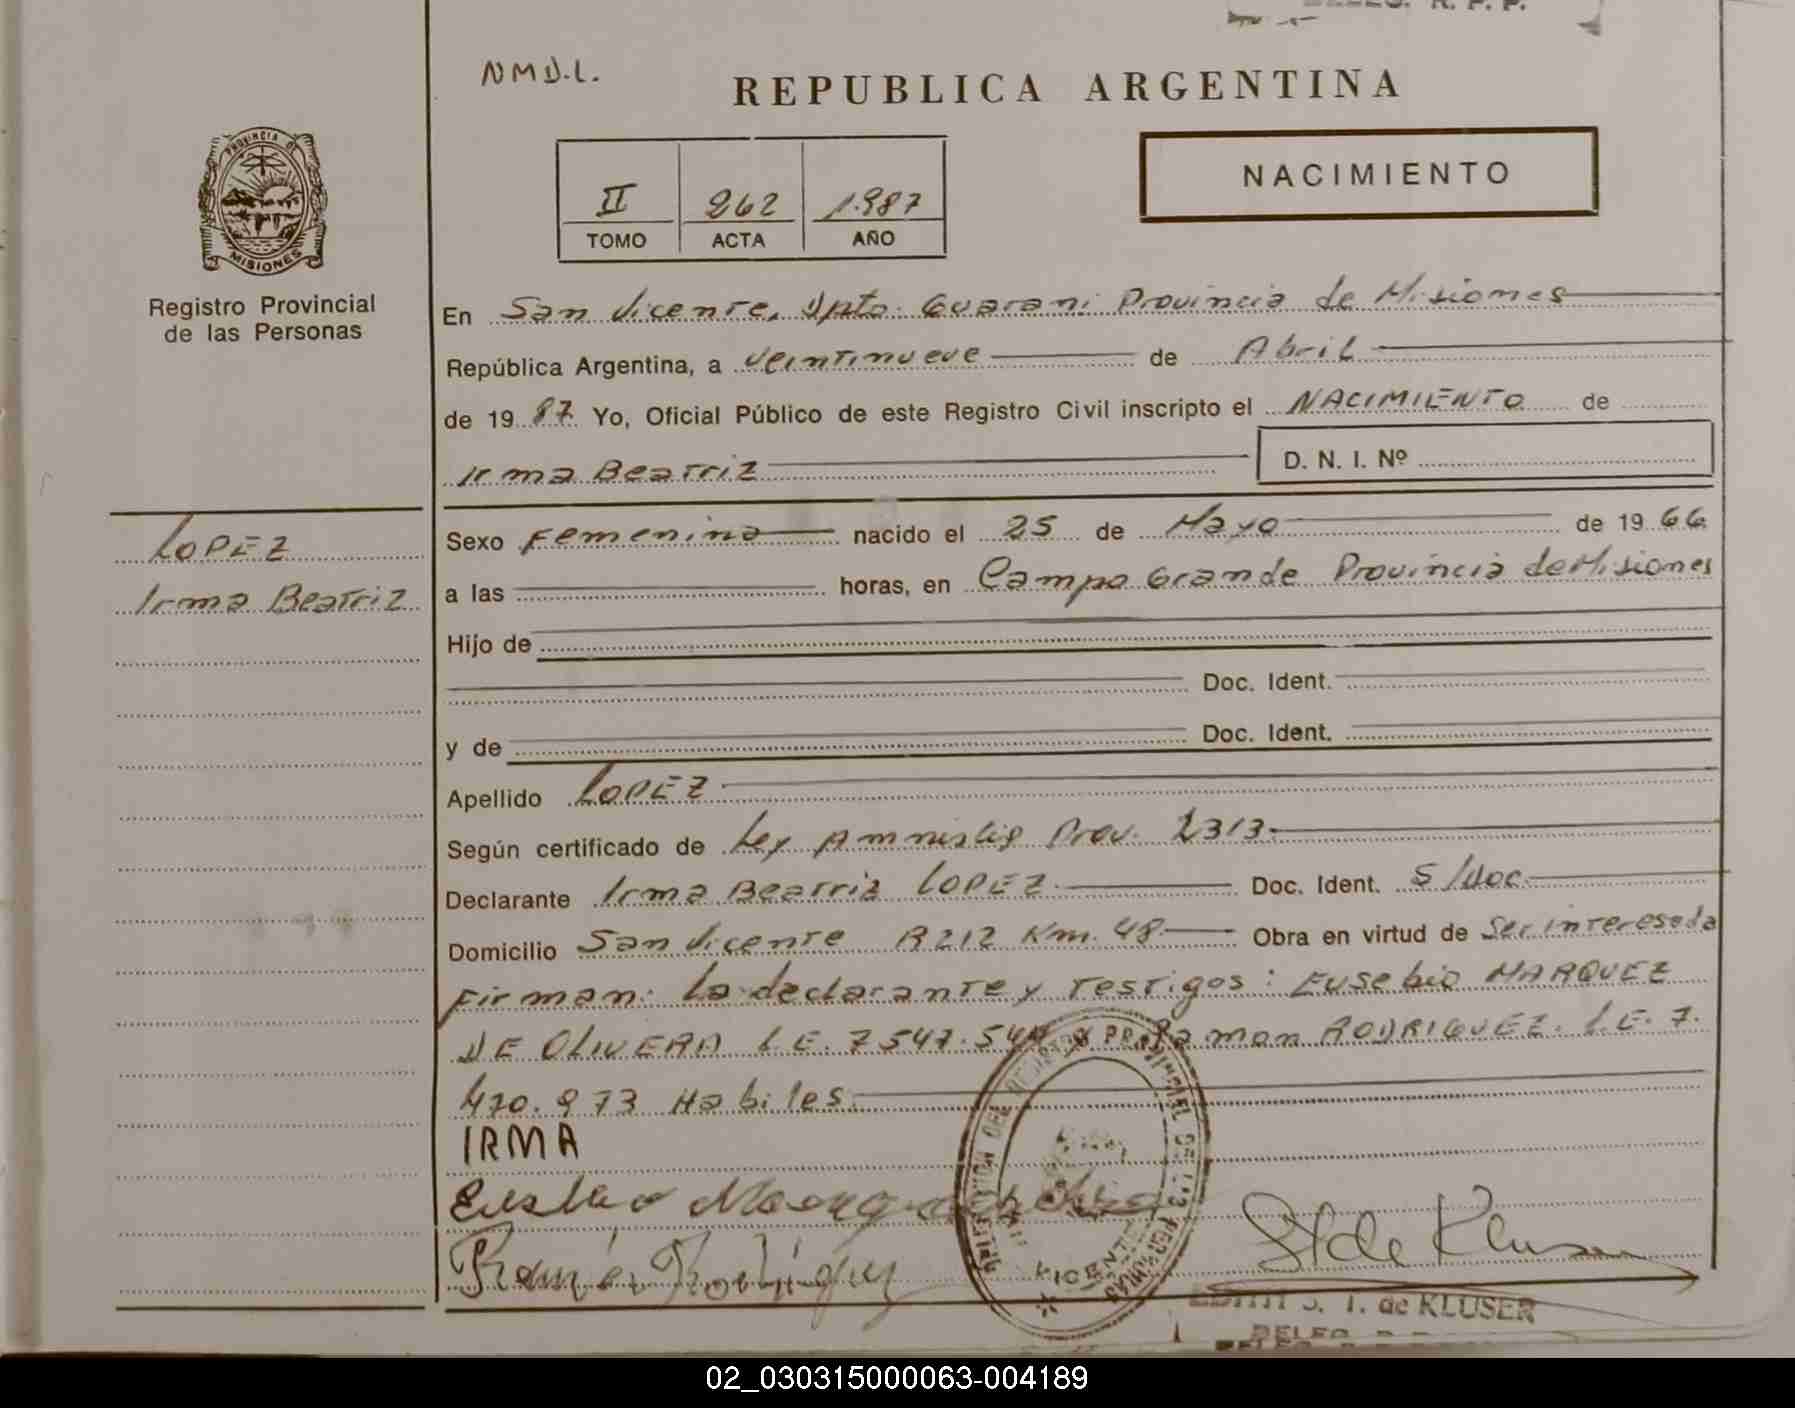 DELEG. R. P. P.
NMD.L.
REPUBLICA ARGENTINA
PROVINCIA DE
MISIONES
Registro Provincial
de las Personas
II 262 1.987
TOMO ACTA AÑO
NACIMIENTO
En San Vicente, Dpto. Guarani Provincia de Misiones
República Argentina, a veintinueve de Abril
de 19 87. Yo, Oficial Público de este Registro Civil inscripto el NACIMIENTO de
Irma Beatriz D. N. I. Nº
LOPEZ
Irma Beatriz
Sexo Femenino nacido el 25 de Mayo de 19 66
a las horas, en Campo Grande Provincia de Misiones
Hijo de
Doc. Ident.
y de Doc. Ident.
Apellido LOPEZ
Según certificado de Ley Amnistia Prov. 2313.
Declarante Irma Beatriz LOPEZ. Doc. Ident. S/doc.
Domicilio San Vicente R212 Km. 48 Obra en virtud de Ser interesada
Firman: La declarante y Testigos: Eusebio MARQUEZ
DE OLIVERA L.E. 7547.544 y Ramon RODRIGUEZ. L.E. 7.
470.973 Habiles.
IRMA
Ramón Rodríguez
St de Kluser
EDITH S. T. de KLUSER
DELEG. R. P.
VICENTE
02_030315000063-004189